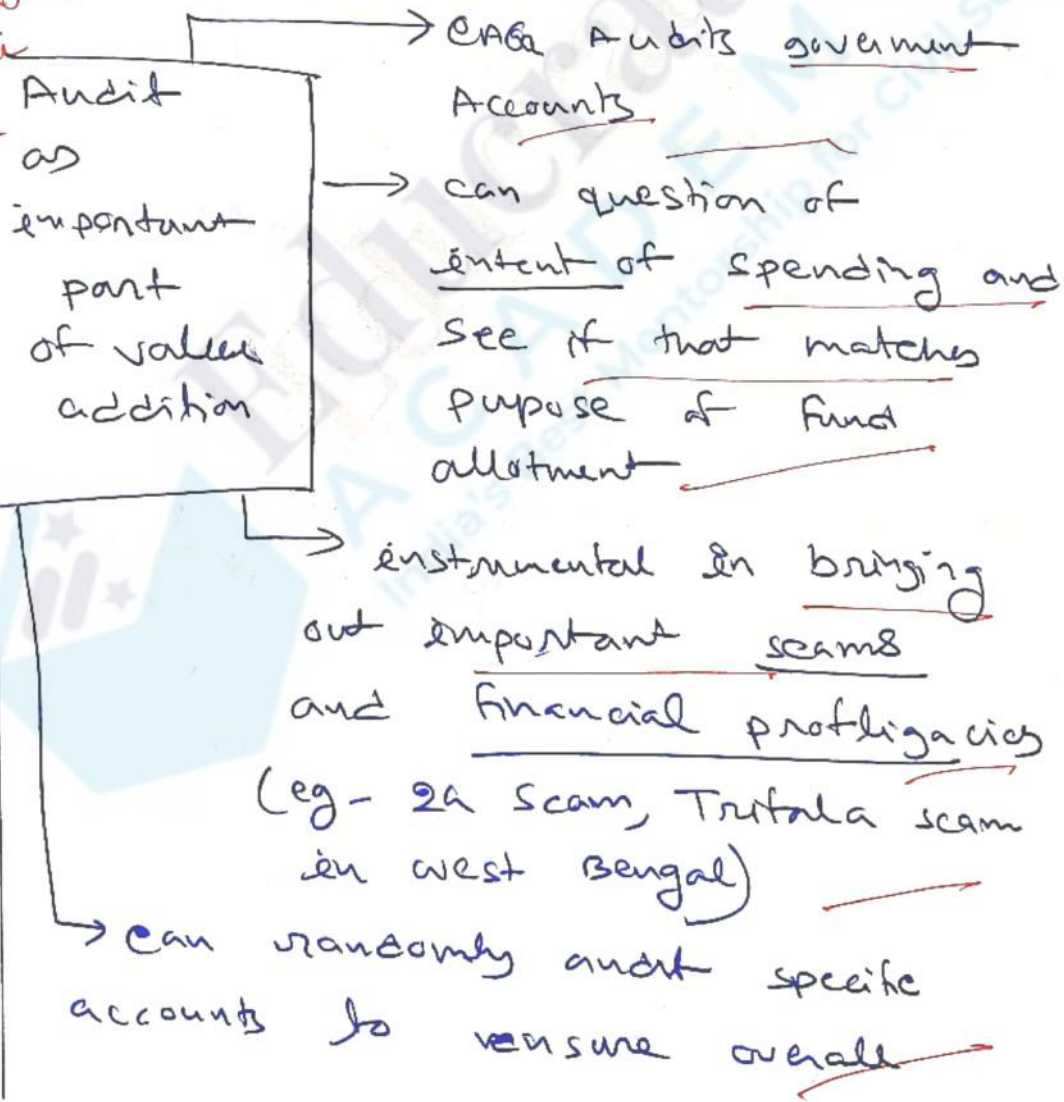 Audit
as
important
part
of value
addition
→ CAG Audits goverment
Accounts
→ can question of
intent of spending and
see if that matches
pupose of fund
allotment
→ instrumental in bringing
out important scams
and financial profligacies
(eg - 2G Scam, Trifala scam
in West Bengal)
→ can randomly audit specific
accounts to ensure overall
Educra
ACADEM
India's Best Mentorship for Civil Se